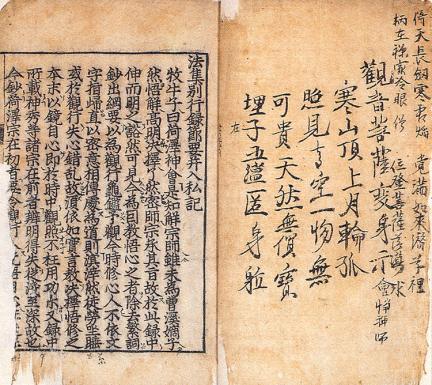 倚天長劒寒
觀音菩薩變身示
寒山頂上月輪孤
照見方空一物無
可貴天然無價寶
埋子五蘊匿身躯
在
法集別行錄節要幷入私記
牧牛子曰荷澤神會是知解宗師雖未爲曹溪嫡子
然悟解高明決擇了然密師宗承其旨故於此錄中
伸而明之豁然可見今爲因敎悟心之者除去繁詞
鈔出綱要以爲觀行龜鑑予觀今時修心人不依文
字指歸直以密意相傳處爲道則溟涬然徒勞坐睡
或於觀行失心錯亂故須依如實言敎決擇悟修之
本末以鏡自心即於時中觀照不枉用功爾又錄中
所載神秀等諸宗在前者辨明得失從淺至深故也
今鈔荷澤宗在初者要令觀行人先悟自心